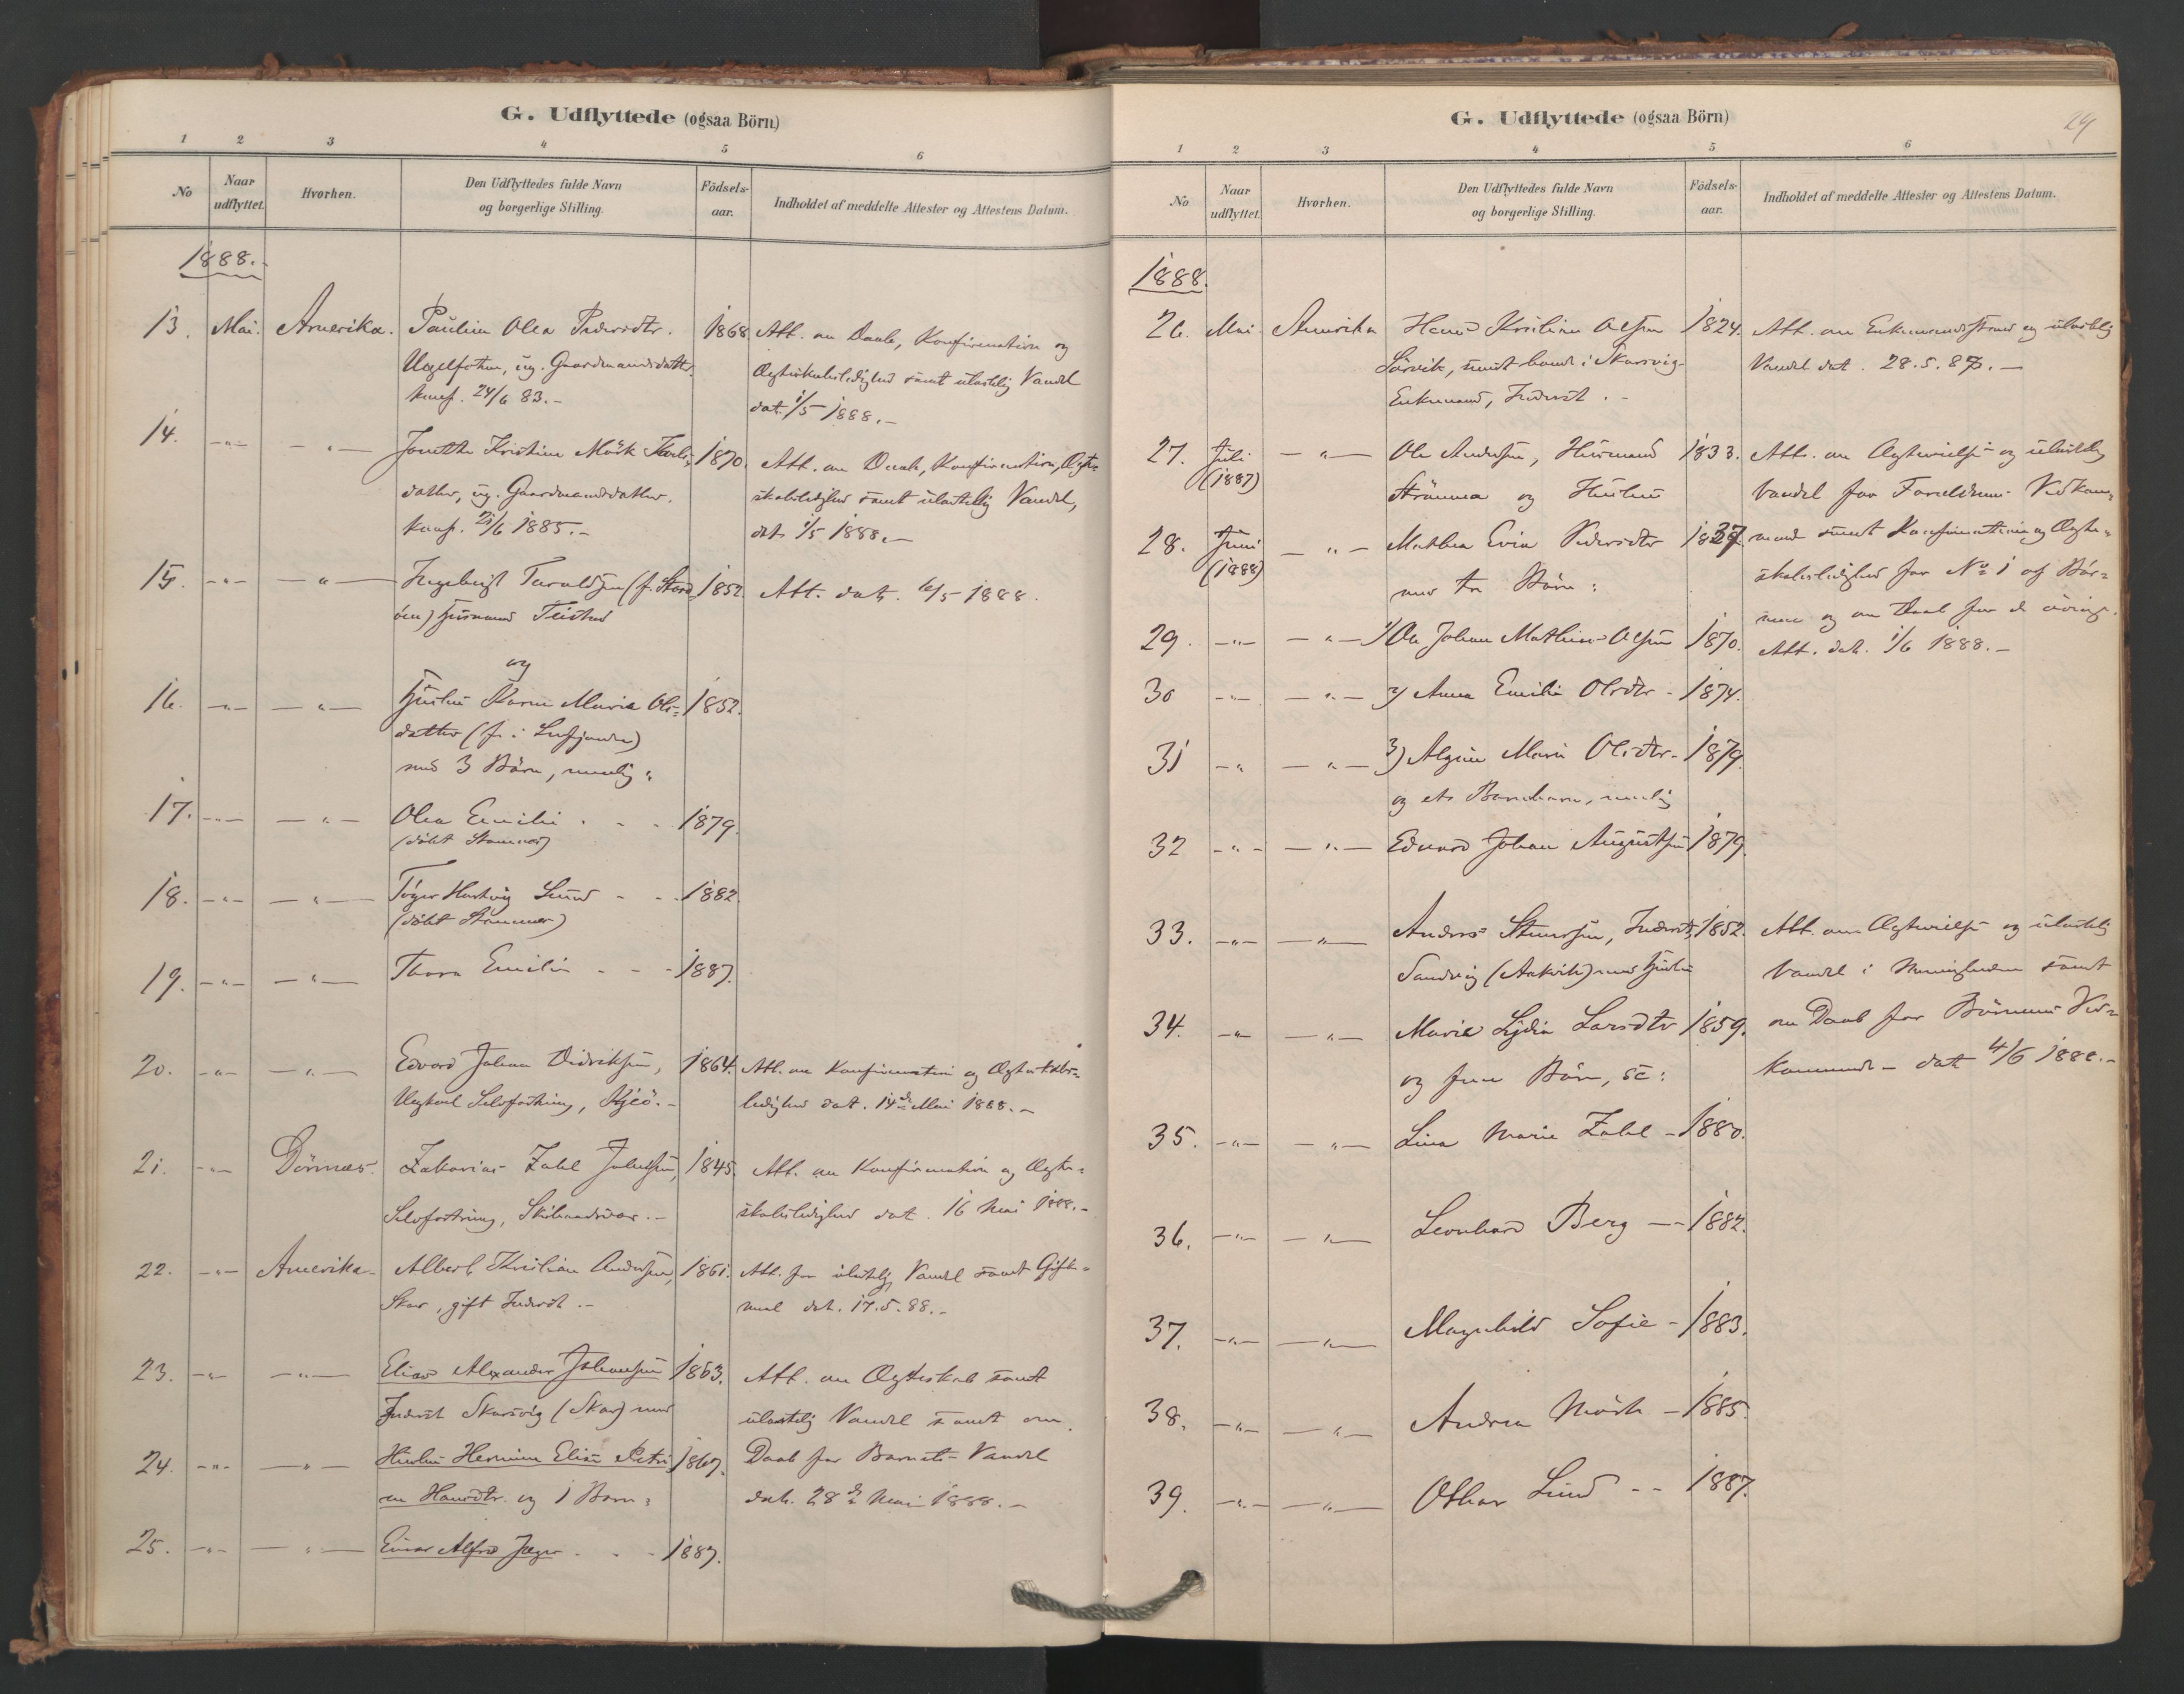 G. Udflyttede (ogsaa Börn)
1 2 3 4 5 6
No Naar udflyttet. Hvorhen. Den Udflyttedes fulde Navn og borgerlige Stilling. Födsels-aar. Indholdet af meddelte Attester og Attestens Datum.
1888.
13. Mai. Amerika. Pauline Olea Pedersdtr. 1868. Att. om Daab, Konfirmation og
ug. Gaardmandsdatter. Ægteskabsledighed samt ulastelig Vandel
konf. 24/6 83.- dat. 1/5 1888.-
14. -"- -"- Jonette Kristine Mörk Karls- 1870. Att. om Daab, Konfirmation, Ægte-
datter, ug. Gaardmandsdatter. skabsledighed samt ulastelig Vandel,
konf. 21/6 1885.- dat. 1/5 1888.-
15. -"- -"- Ingebrigt Taraldsen 1852. Att. dat. 12/5 1888.
Husmand
og
16. -"- -"- Hustru Karen Marie Ols- 1852.
datter
med 3 Börn, nemlig:
17. -"- -"- Olea Emilie 1879.
(döbt Stamnes)
18. -"- -"- Töger Hartvig Lund 1882.
(döbt Stamnes)
19. -"- -"- Thora Emilie 1887.
20. -"- -"- Edvard Johan Didriksen, 1864. Att. om Konfirmation og Ægteskabs-
Ungkarl Selvfostring, ledighed dat. 14de Mai 1888.-
21. -"- Dönnes. Zakarias Zahl Johnsen, 1845. Att. om Konfirmation og Ægte-
Selvfostring, skabsledighed dat. 16 Mai 1888.-
22. -"- Amerika. Albert Kristian Andersen, 1861. Att. for ulastelig Vandel samt Gifte-
Skar, gift Inderst.- maal dat. 17.5.88.-
23. -"- -"- Elias Alexander Johansen 1863. Att. om Ægteskab samt
Inderst Skarsvig (Skar) med ulastelig Vandel samt om
24. -"- -"- Hustru Hermine Elise Petri- 1867. Daab for Barnets Vandel
ne Hansdtr. og 1 Barn: dat. 28de Mai 1888.-
25. -"- -"- Einar Alfred Jæger 1887.
G. Udflyttede (ogsaa Börn)
29
1 2 3 4 5 6
No Naar udflyttet. Hvorhen. Den Udflyttedes fulde Navn og borgerlige Stilling. Födsels-aar. Indholdet af meddelte Attester og Attestens Datum.
1888.
26. Mai Amerika Hans Kristian Olsen 1824. Att. om Enkemandsstand og ulastelig
Sörvik, sidst boende i Skarsvig Vandel dat. 28.5.88.-
Enkemand, Inderst.-
27. Juli (1887) -"- Ole Andersen, Husmand 1833. Att. om Ægtevielse og ulastelig
Strömmen og Hustru Vandel for Forældrenes Vedkom-
28. Juni (1888) -"- Mathea Evine Pedersdtr 1837. mende samt Konfirmation og Ægte-
med tre Börn: skabsledighed for No 1 af Bör-
29. -"- -"- 1) Ole Johan Mathias Olsen 1870. nene og om Daab for de övrige.
Att. dat. 1/6 1888.-
30 -"- -"- 2) Anna Emilie Olsdtr - 1874.
31 -"- -"- 3) Alvine Marie Olsdtr - 1879.
og et Barnebarn, nemlig
32 -"- -"- Edvard Johan Augustsen 1879.
33. -"- -"- Anders Steensen, Inderst, 1852. Att. om Ægtevielse og ulastelig
Sandvig (Aakvik) med Hustru Vandel i Menigheden samt
34. -"- -"- Marie Lydia Larsdtr 1859. om Daab for Börnenes Ved-
og fem Börn, sc: kommende - dat 4/6 1888.-
35. -"- -"- Lina Marie Zahl - 1880.
36. -"- -"- Leonhard Berg - 1882.
37. -"- -"- Magnhild Sofie - 1883.
38. -"- -"- Andrea Mörk - 1885.
39. -"- -"- Othar Lund - 1887.